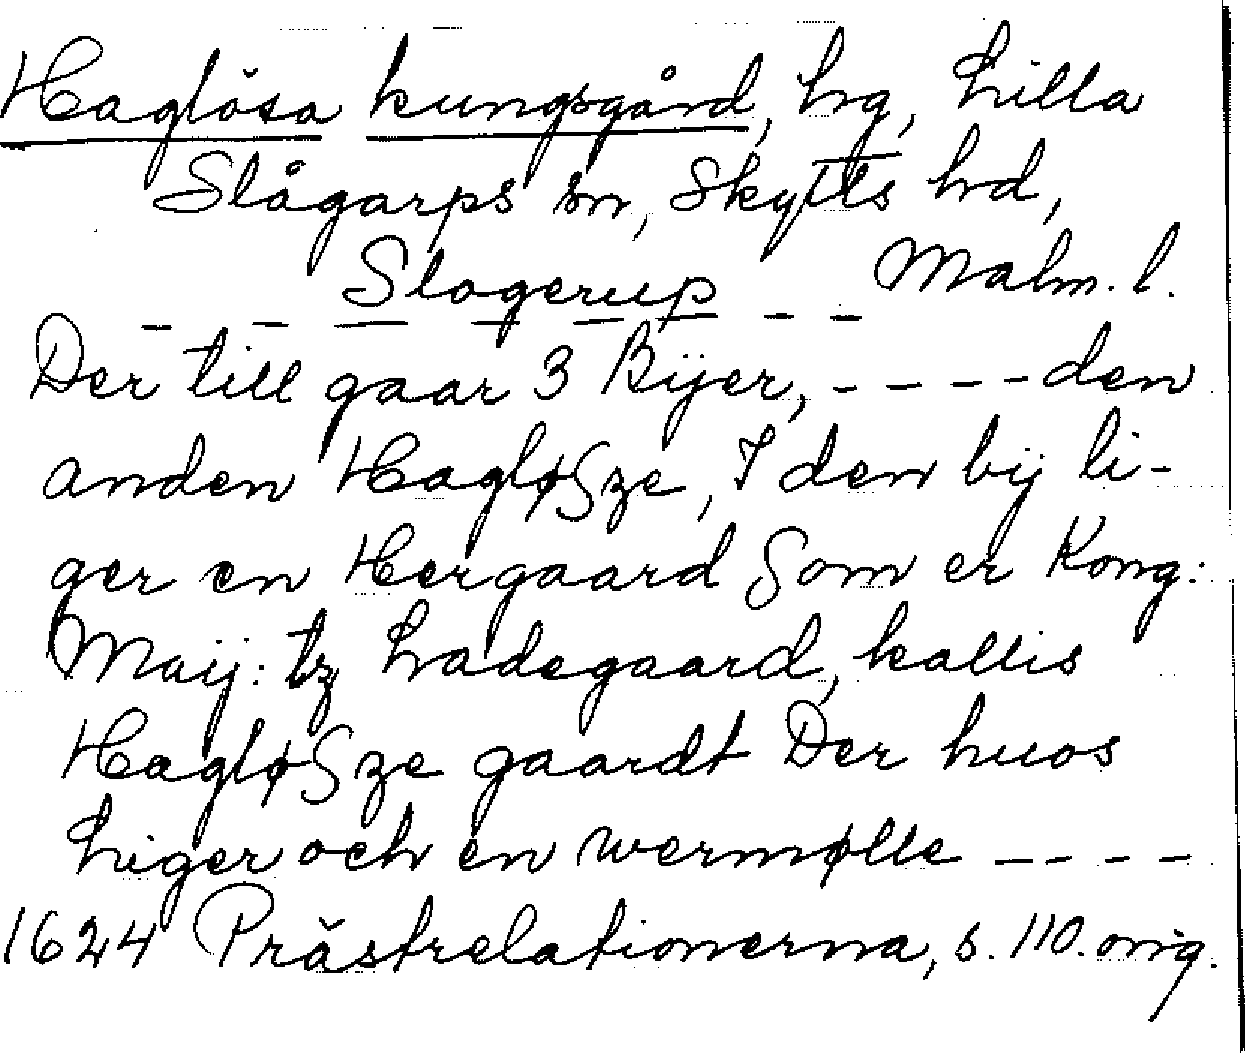 Haglösa kungsgård, hg, Lilla
Slågarps sn, Skytts hd,
Slogerup _ _ Malm. l.
Der till gaar 3 Bÿer, - - - - den
anden HagløSze, I den bÿ li-
ger en Hergaard Som er Kong:
Maÿ: tz Ladegaard, kallis
HagløSze gaardt Der huos
Liger och en wermølle - - - -
1624 Prästrelationerna, s. 110. orig.